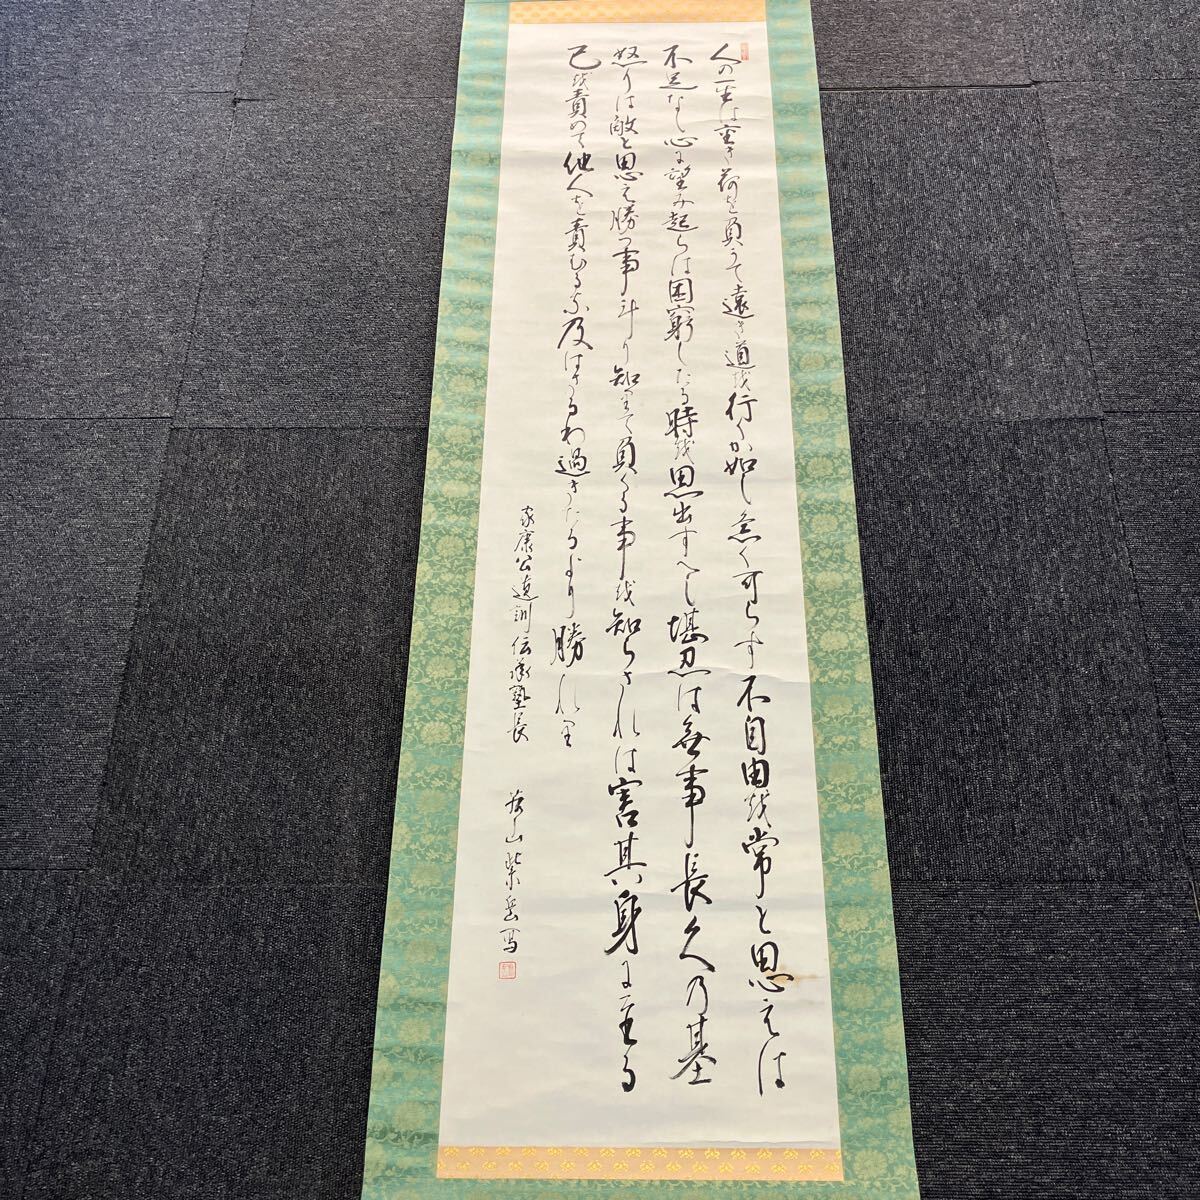 人の一生は重き荷を負うて遠き道越行くか如し急く可らす不自由越常と思えは
不足なし心に望み起らは困窮したる時越思出すへし堪忍は無事長久乃基
怒りは敵と思え勝つ事斗り知りて負くる事越知らされは害其身に至る
己越責めて他人を責むるな及はさるわ過きたるより勝れり
家康公遺訓伝承塾長
山紫岳写